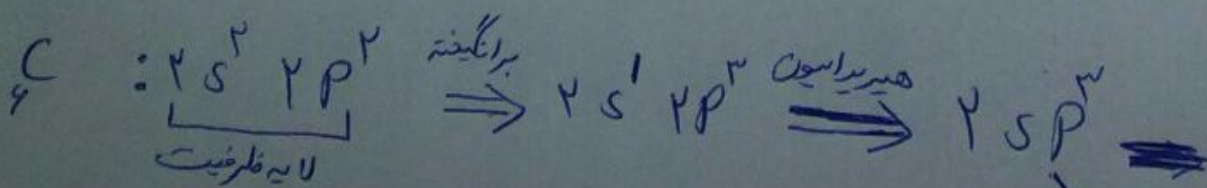 ₆C : ۲s² ۲p² برانگیخته ⇒ ۲s¹ ۲p³ هیبریداسیون ⇒ ۲sp³ ⇒
لایه ظرفیت